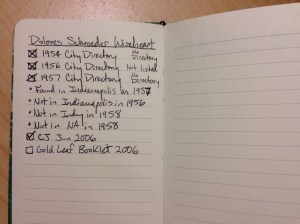 Dolores Schroeder Wineheart
1954 City Directory No Directory
1956 City Directory Not listed
1957 City Directory No Directory
• Found in Indianapolis in 1957
• Not in Indianapolis in 1956
• Not in Indy in 1958
• Not in NA in 1958
CJ Jan 2006
Gold Leaf Booklet 2006